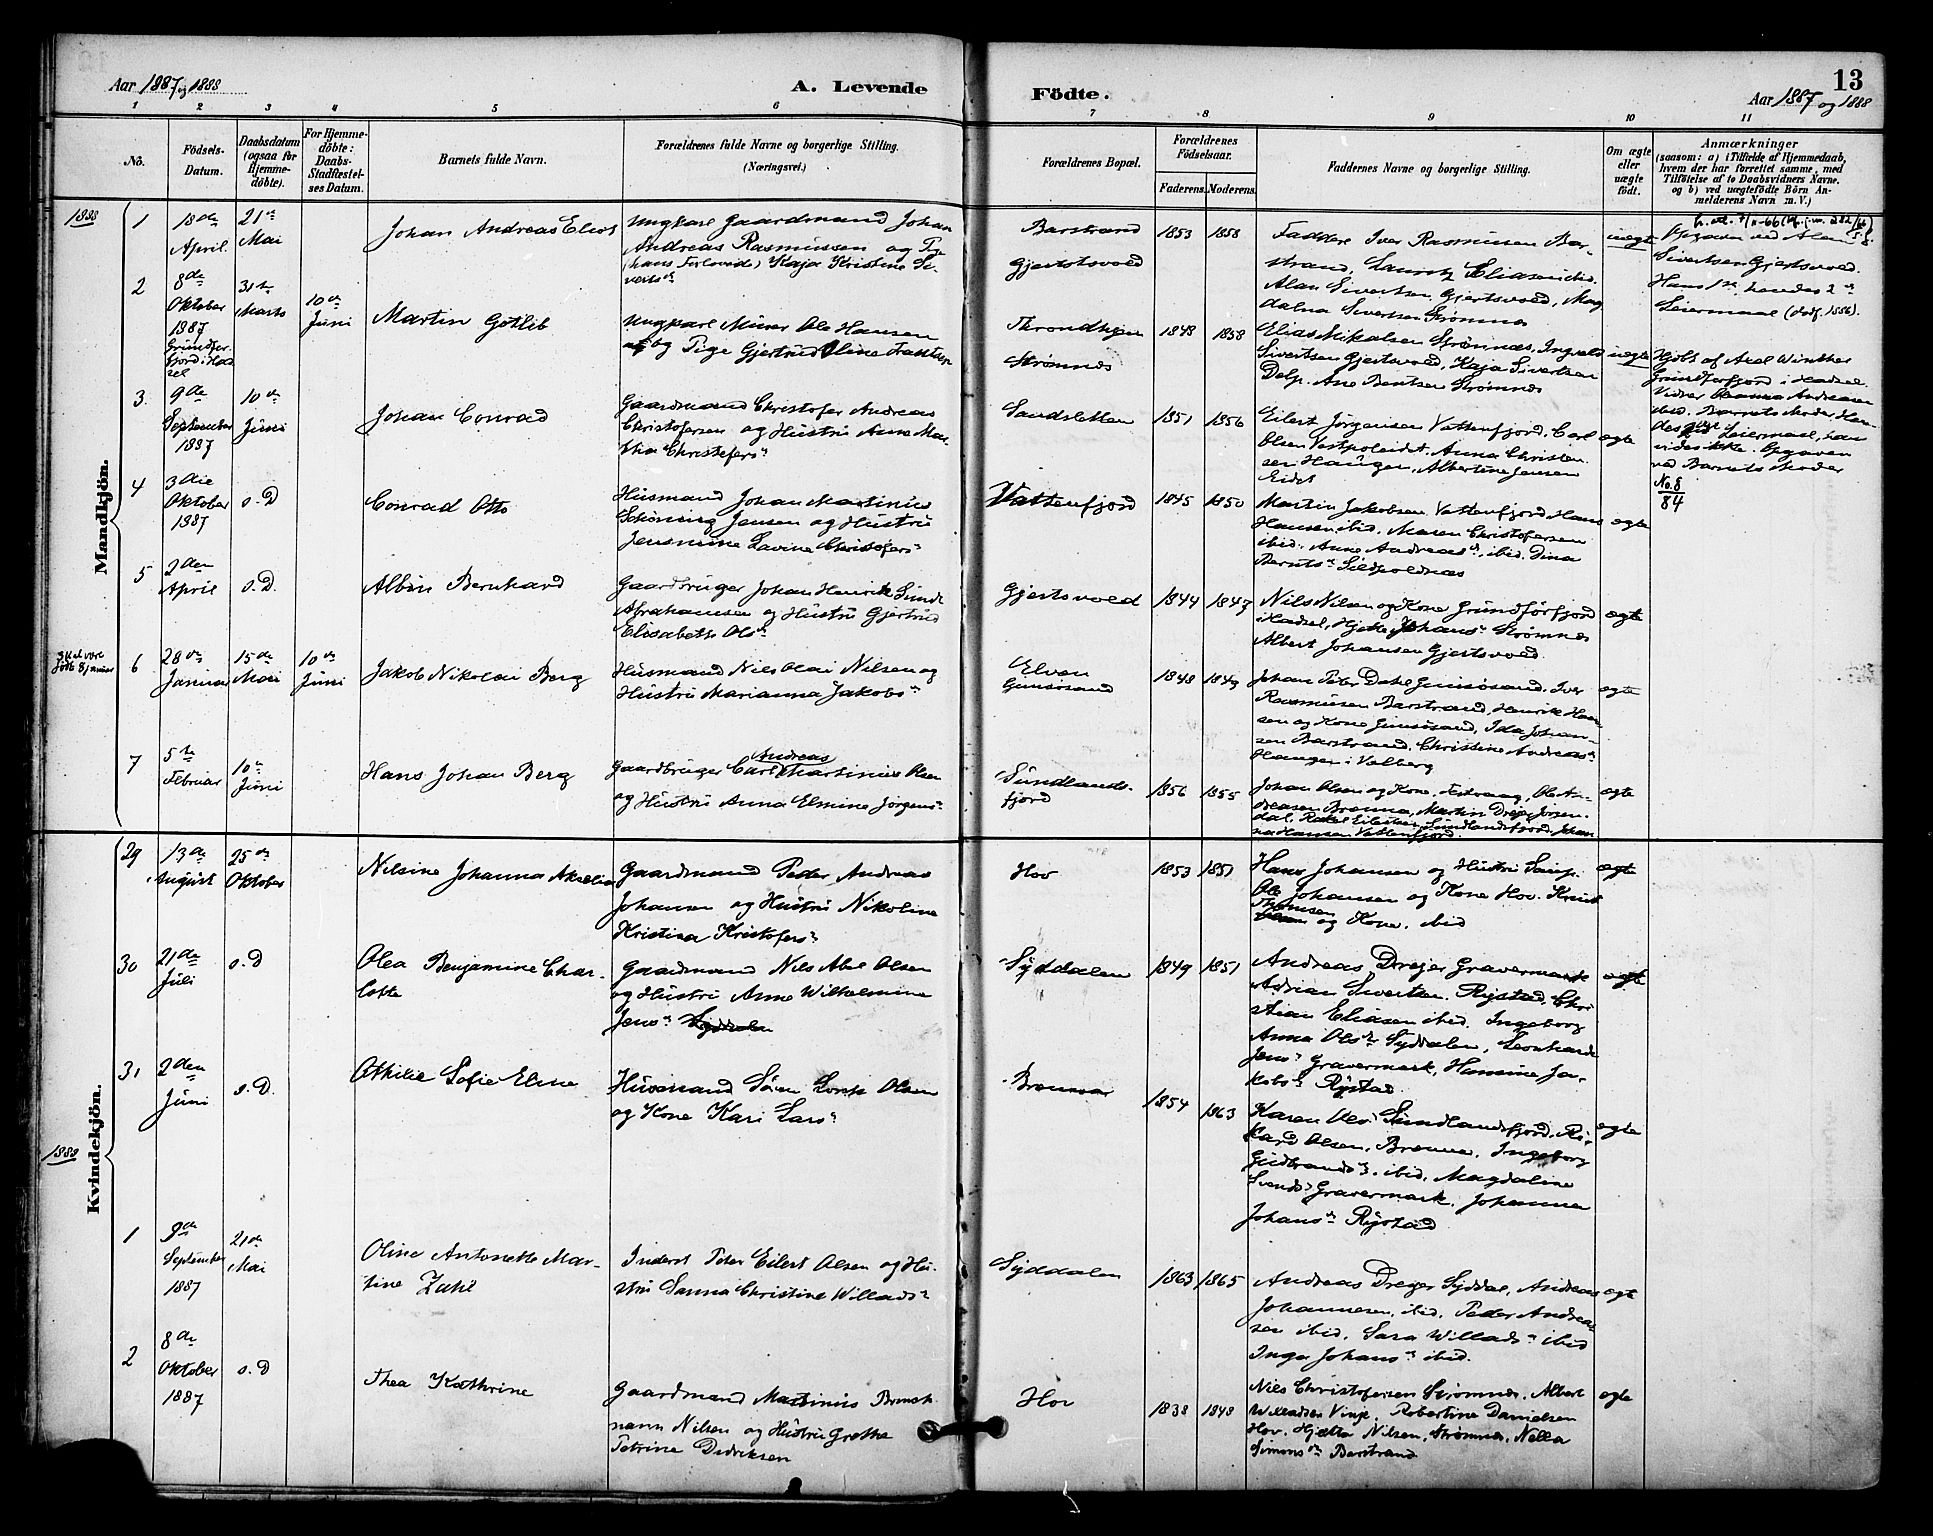 Aar 1887 og 1888
A. Levende
Födte.
13
Aar 1887 og 1888
1 2 3 4 5 6 7 8 9 10 11
No.
Födsels-
Datum.
Daabsdatum
(ogsaa for
Hjemme-
döbte).
For Hjemme-
döbte:
Daabs-
Stadfæstel-
ses Datum.
Barnets fulde Navn.
Forældrenes fulde Navne og borgerlige Stilling.
(Næringsvei.)
Forældrenes Bopæl.
Forældrenes
Födselsaar.
Faderens. Moderens.
Faddernes Navne og borgerlige Stilling.
Om ægte
eller
uægte
födt.
Anmærkninger
(saasom: a) i Tilfælde af Hjemmedaab,
hvem der har forrettet samme, med
Tilföielse af to Daabsvidners Navne,
og b) ved uægtefödte Börn An-
melderens Navn m. V.)
Mandkjön.
1888
1
18de
April.
21de
Mai
Johan Andreas Elias
Ungkarl Gaardmand Johan
Andreas Rasmussen og Pige
(hans Forlovede) Kaja Kristine Si-
vertsd.
Barstrand
Gjertsvold
1853 1858
Faddere Iver Rasmussen Bar-
strand, Lauritz Eliasen ibid.
Alan Sivertsen Gjertsvold, Mag
dalna Sivertsen Strømnes
uægte
Opgaven ved Alan
Sivertsen Gjertsvold.
Hans 1ste hendes 2det
Leiermaal
2
8de
Oktober
1887
Grundfor-
fjord i Had-
sel
31te
Marts
10de
Juni
Martin Gotlib
Ungkarl Murer Ole Hansen
og Pige Gjertrud Oline Frantsen
Throndhjem
Strømnes
1848 1858
Elias Mikalsen Strømnæs, Ingvald
Sivertsen Gjertsvold, Kaja Sivertsen
Delp. Ane Bentsen Strømnes
uægte
Hjdbt af Axel Winther
Grundforfjord i Hadsel.
Vidner Hanna Andreasen
ibid. Barnets Moder Hen-
des Leiermaal, han
vides ikke. Opgaven
ved Barnets Moder
No. 8
84
3.
9de
September
1887
10de
Juni
Johan Conrad
Gaardmand Christofer Andreas
Christofersen og Hustru Anne Mar-
tha Christofersd.
Sandsletten
1851 1856
Eilert Jörgensen Vattenfjord. Carl
Olsen Vestpoleidet. Anna Christen
sen Haugen, Albertine Jensen
Eidet
ægte
4
3die
Oktober
1887
s. D
Conrad Otto
Husmand Johan Martinius
Schöning Jensen og Hustru
Jensmine Lavine Christofersd.
Vattenfjord
1845 1850
Martin Jakobsen Vattenfjord Hans
Hansen ibid. Maren Christofersen
ibid. Anne Andreasd. ibid. Dina
Berntsd. Sildpoldnæs
ægte
5
2den
April
s. D.
Albin Bernhard
Gaardbruger Johan Henrik Sund
Abrahamsen og Hustru Gjertrud
Elisabeth Olsd.
Gjertsvold
1844 1847
Nils Nilsen og Kone Grundforfjord
i Hadsel, Hjette Johansd. Strømnes
Albert Johansen Gjertsvold.
ægte
Skal være
født 8 januar
6
28de
Januar
15de
Mai
10de
Juni
Jakob Nikolai Berg
Husmand Nils Olai Nilsen og
Hustru Marianna Jakobsd.
Elven
Gimsösand
1848 1849
Johan Peter Dahl Gimsösand. Iver
Rasmussen Barstrand, Henrik Han-
sen og Kone Gimsösand, Ida Johan-
sen Barstrand. Christine Andreasd.
Haugen i Valberg
ægte
7
5te
Februar
10de
Juni
Hans Johan Berg
Gaardbruger Carl Andreas Martinius Olsen
og Hustru Anna Elmine Jørgensd.
Sundlands-
fjord
1856 1855
Johan Olsen og Kone, Festvaag, Ole An-
dreasen Brenna, Martin Drejer Jörgen-
dal, Rakel Eilertsen Sundlandsfjord. Johan
na Hansen Vattenfjord.
ægte
Kvindekjön.
29
13de
August
25de
Oktober
Nilsine Johanna Akselia
Gaardmand Peder Andreas
Johansen og Hustru Nikoline
Kristina Kristofersd.
Hov
1853 1851
Hans Johansen og Hustru
Ole Johansen og Kone Hov. Knud
Thomsen og Kone. ibid
ægte
30
21de
Juli
s. D
Olea Benjamine Char-
lotte
Gaardmand Nils Abel Olsen
og Hustru Anne Wilhelmine
Jensd. Syddalen
Syddalen
1849 1851
Andreas Drejer Gravermark
Adrian Sivertsen. Rystad, Chri
stian Eliasen ibid. Ingeborg
Anna Olsd. Syddalen, Leonharde
Jensd. Gravermark, Hansine Ja-
kobsd. Rystad
ægte
31
2den
Juni
s. D.
Othilie Sofie Eline
Husmand Sören Lorch Olsen
og Kone Kari Larsd.
Brenna
1854 1863
Karen Olsd. Sundlandsfjord. Ri-
kard Olsen, Brenna. Ingeborg
Gudbrandsd. ibid, Magdaline
Svendsd. Gravermark. Johanna
Johansd. Rystad
ægte
1888
1
9de
September
1887
21de
Mai
Oline Antonette Mar-
tine
Inderst Peter Eilert Olsen og Hu-
stru Sanna Christine Willadsd.
Syddalen
1863 1865
Andreas Dreyer Syddal, Andreas
Johannesen, ibid. Peder Andrea-
sen ibid. Sara Willadsd. ibid
Inga Johansd. ibid.
ægte
2
8de
Oktober
1887
s. D
Thea Kathrine
Gaardmand Martinius
Nilsen og Hustru Grethe
Petrine Didriksen
Hov
1838 1848
Nils Christofersen Strømnes. Albert
Willadsen Vinje. Robertine Danielsen
Hov. Hjætta Nilsen, Strømnes, Nella
Simonsd. Barstrand
ægte